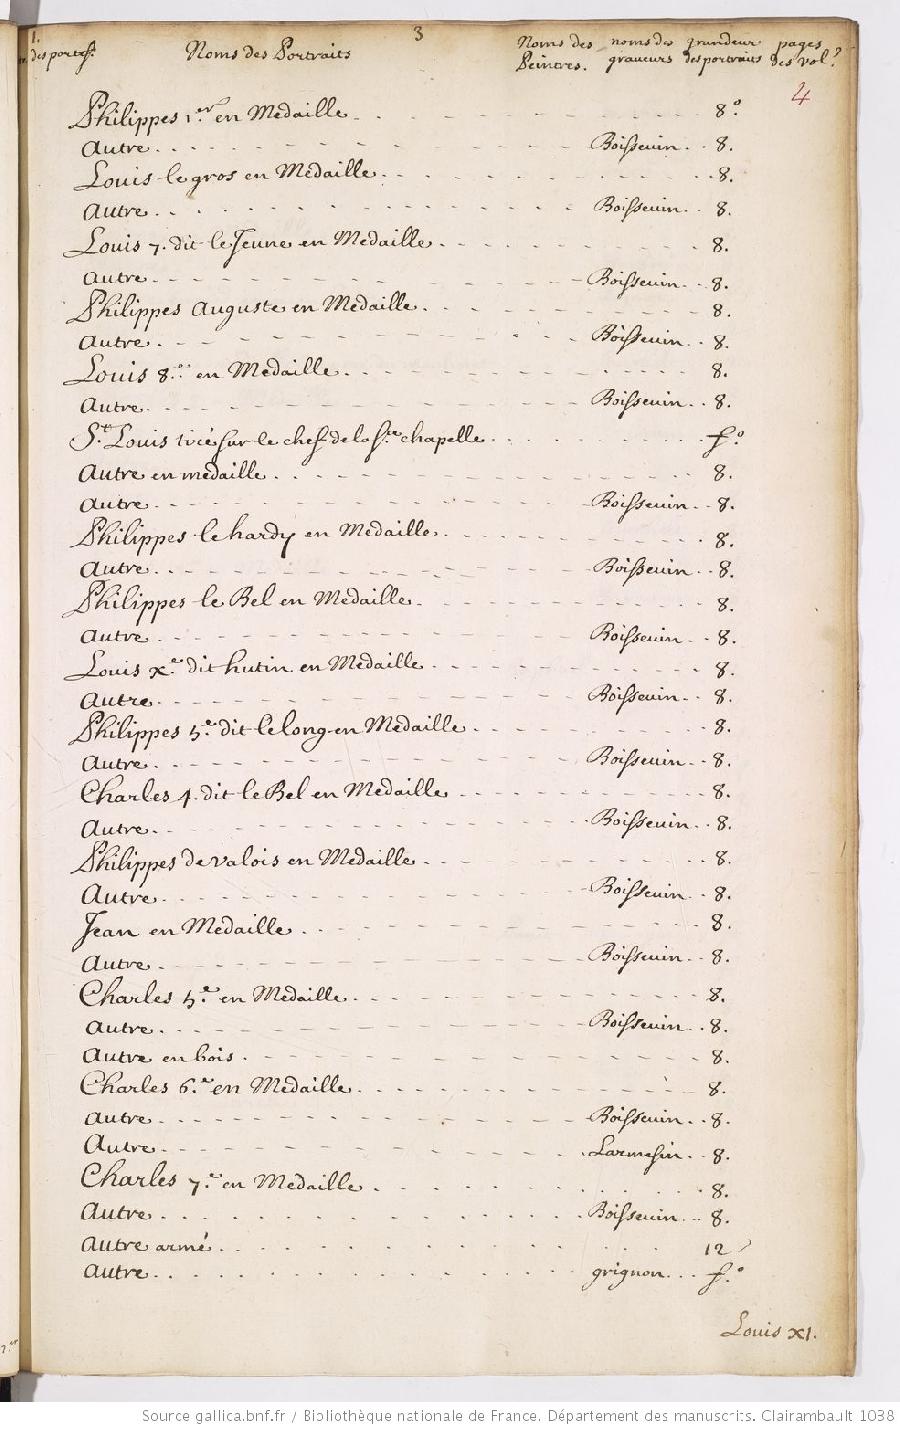 3
1.
des portef.
Noms des Portraits
Noms des Peintres.
noms des graveurs
grandeur des portraits
pages des vol.
4
Philippes 1.er en Medaille 8.o
Autre Boissevin 8.
Louis le gros en Medaille 8.
Autre Boissevin 8.
Louis 7. dit le Jeune en Medaille 8.
Autre Boissevin 8.
Philippes Auguste en Medaille 8.
Autre Boissevin 8.
Louis 8.e en Medaille 8.
Autre Boissevin 8.
St. Louis tiré sur le chef de la Ste. chapelle f.o
Autre en medaille 8.
Autre Boissevin 8.
Philippes le hardy en Medaille 8.
Autre Boissevin 8.
Philippes le Bel en Medaille 8.
Autre Boissevin 8.
Louis X.e dit hutin en Medaille 8.
Autre Boissevin 8.
Philippes 5.e dit le long en Medaille 8.
Autre Boissevin 8.
Charles 4. dit le Bel en Medaille 8.
Autre Boissevin 8.
Philippes de valois en Medaille 8.
Autre Boissevin 8.
Jean en Medaille 8.
Autre Boissevin 8.
Charles 5.e en Medaille 8.
Autre Boissevin 8.
Autre en bois 8.
Charles 6.e en Medaille 8.
Autre Boissevin 8.
Autre Larmesin 8.
Charles 7.e en Medaille 8.
Autre Boissevin 8.
Autre armé 12
Autre grignon f.o
Louis XI.
Source gallica.bnf.fr / Bibliothèque nationale de France. Département des manuscrits. Clairambault 1038